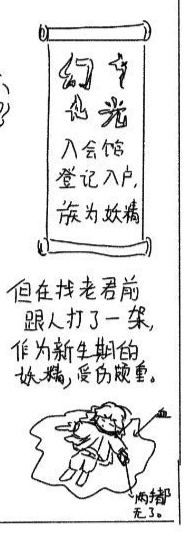 幻
光
入会馆
登记入户,
族为妖精
但在找老君前
跟人打了一架,
作为新生期的
妖精,受伤颇重。
血
两袖都
无了。